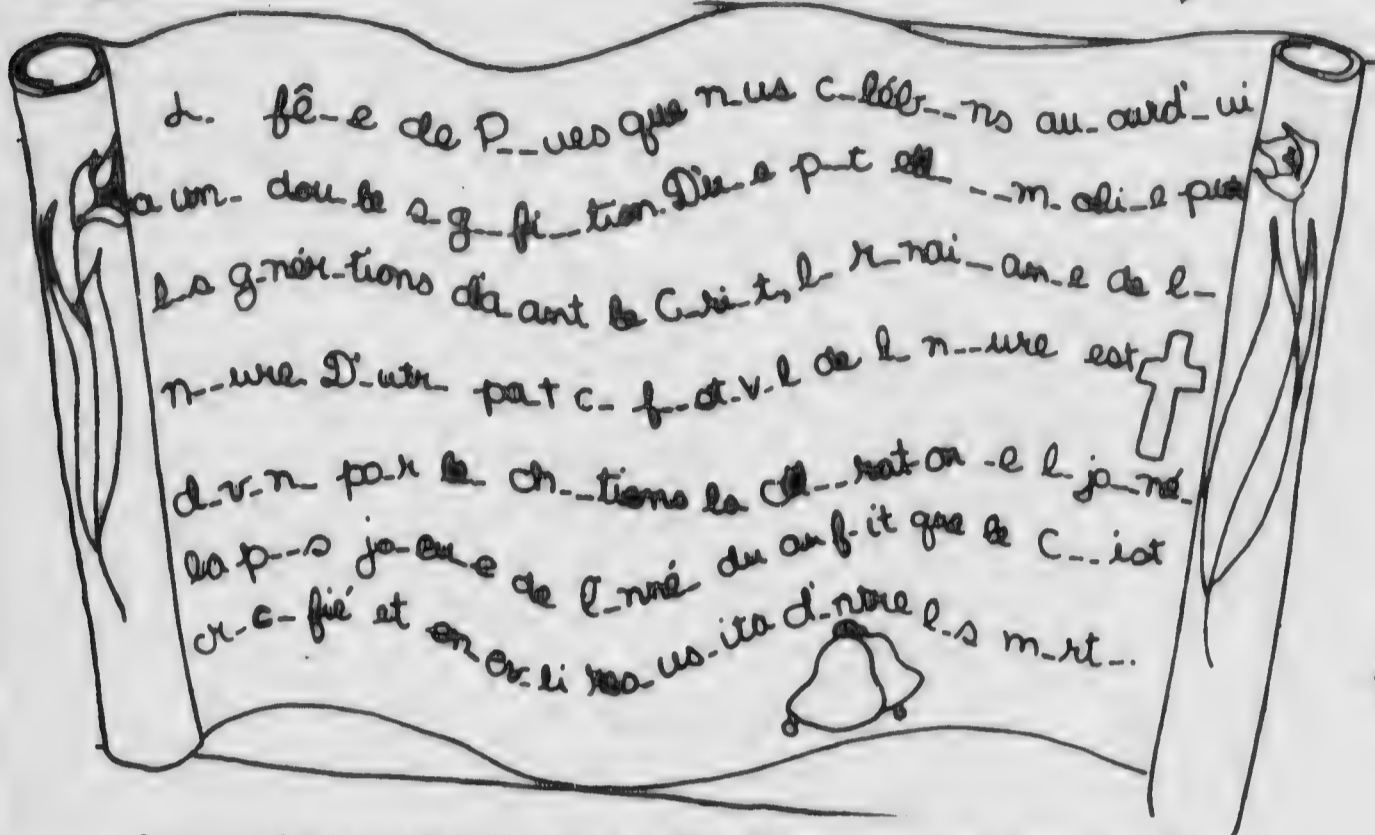 L. fê-e de P--ues que n-us c-léb--ns au-ourd'-ui
a un- dou-le s-g--fi--tion. D'u-e p-t el --m-oli-e pur
l-s g-nér-tions d'a-ant le C-ri-t, l- r-nai-an-e de l-
n--ure D'-utr- pa-t c- f--t-v-l de l- n--ure est
d-v-n- pa-r le- ch--tiens la cél--rat-on -e l- jo-né-
la p--s jo-eu-e de l'-nné- du au f-it que le C--ist
cr-c-fié et en-ev-li res-us-ita d'-ntre l-s m-rt-.